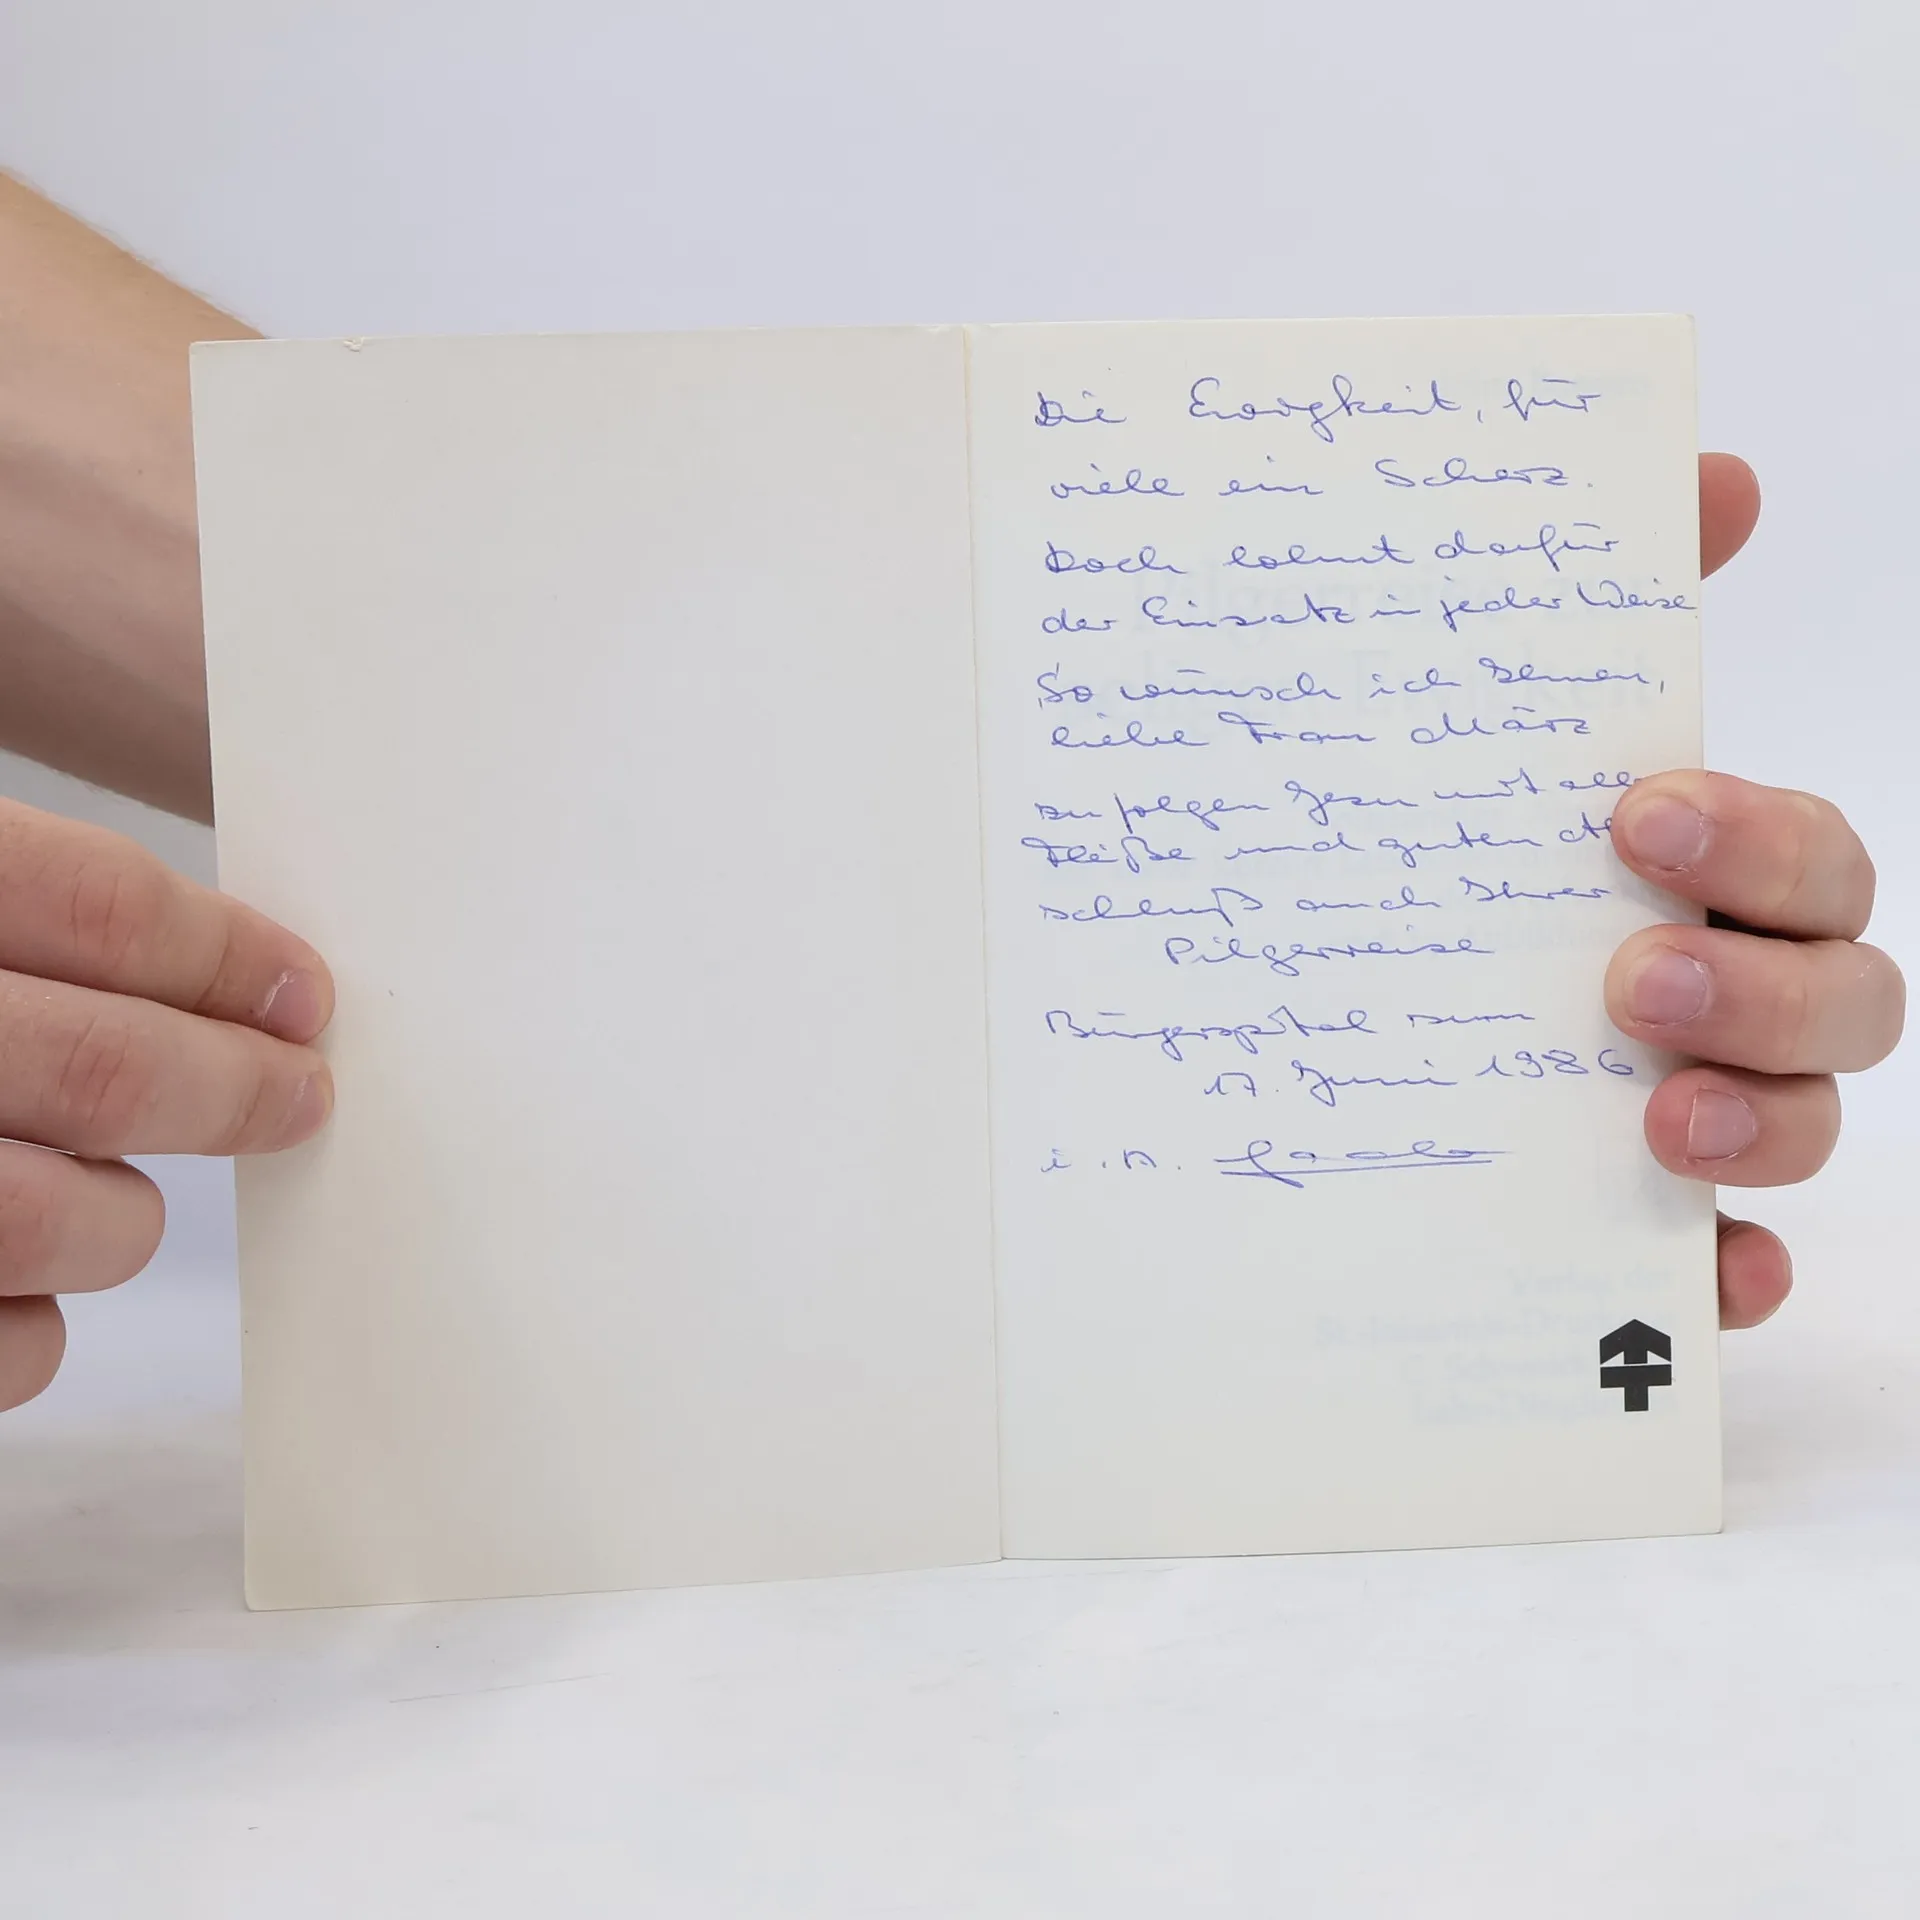 Die Ewigkeit, für
viele ein Scherz.
Doch lohnt dafür
der Einsatz in jeder Weise
So wünsch ich Ihnen,
liebe Frau März
zu folgen Jesu mit
Fleiße und guten
schluß auch Ihrer
Pilgerreise
Bürgerspital zum
17. Juni 1986
i. A.